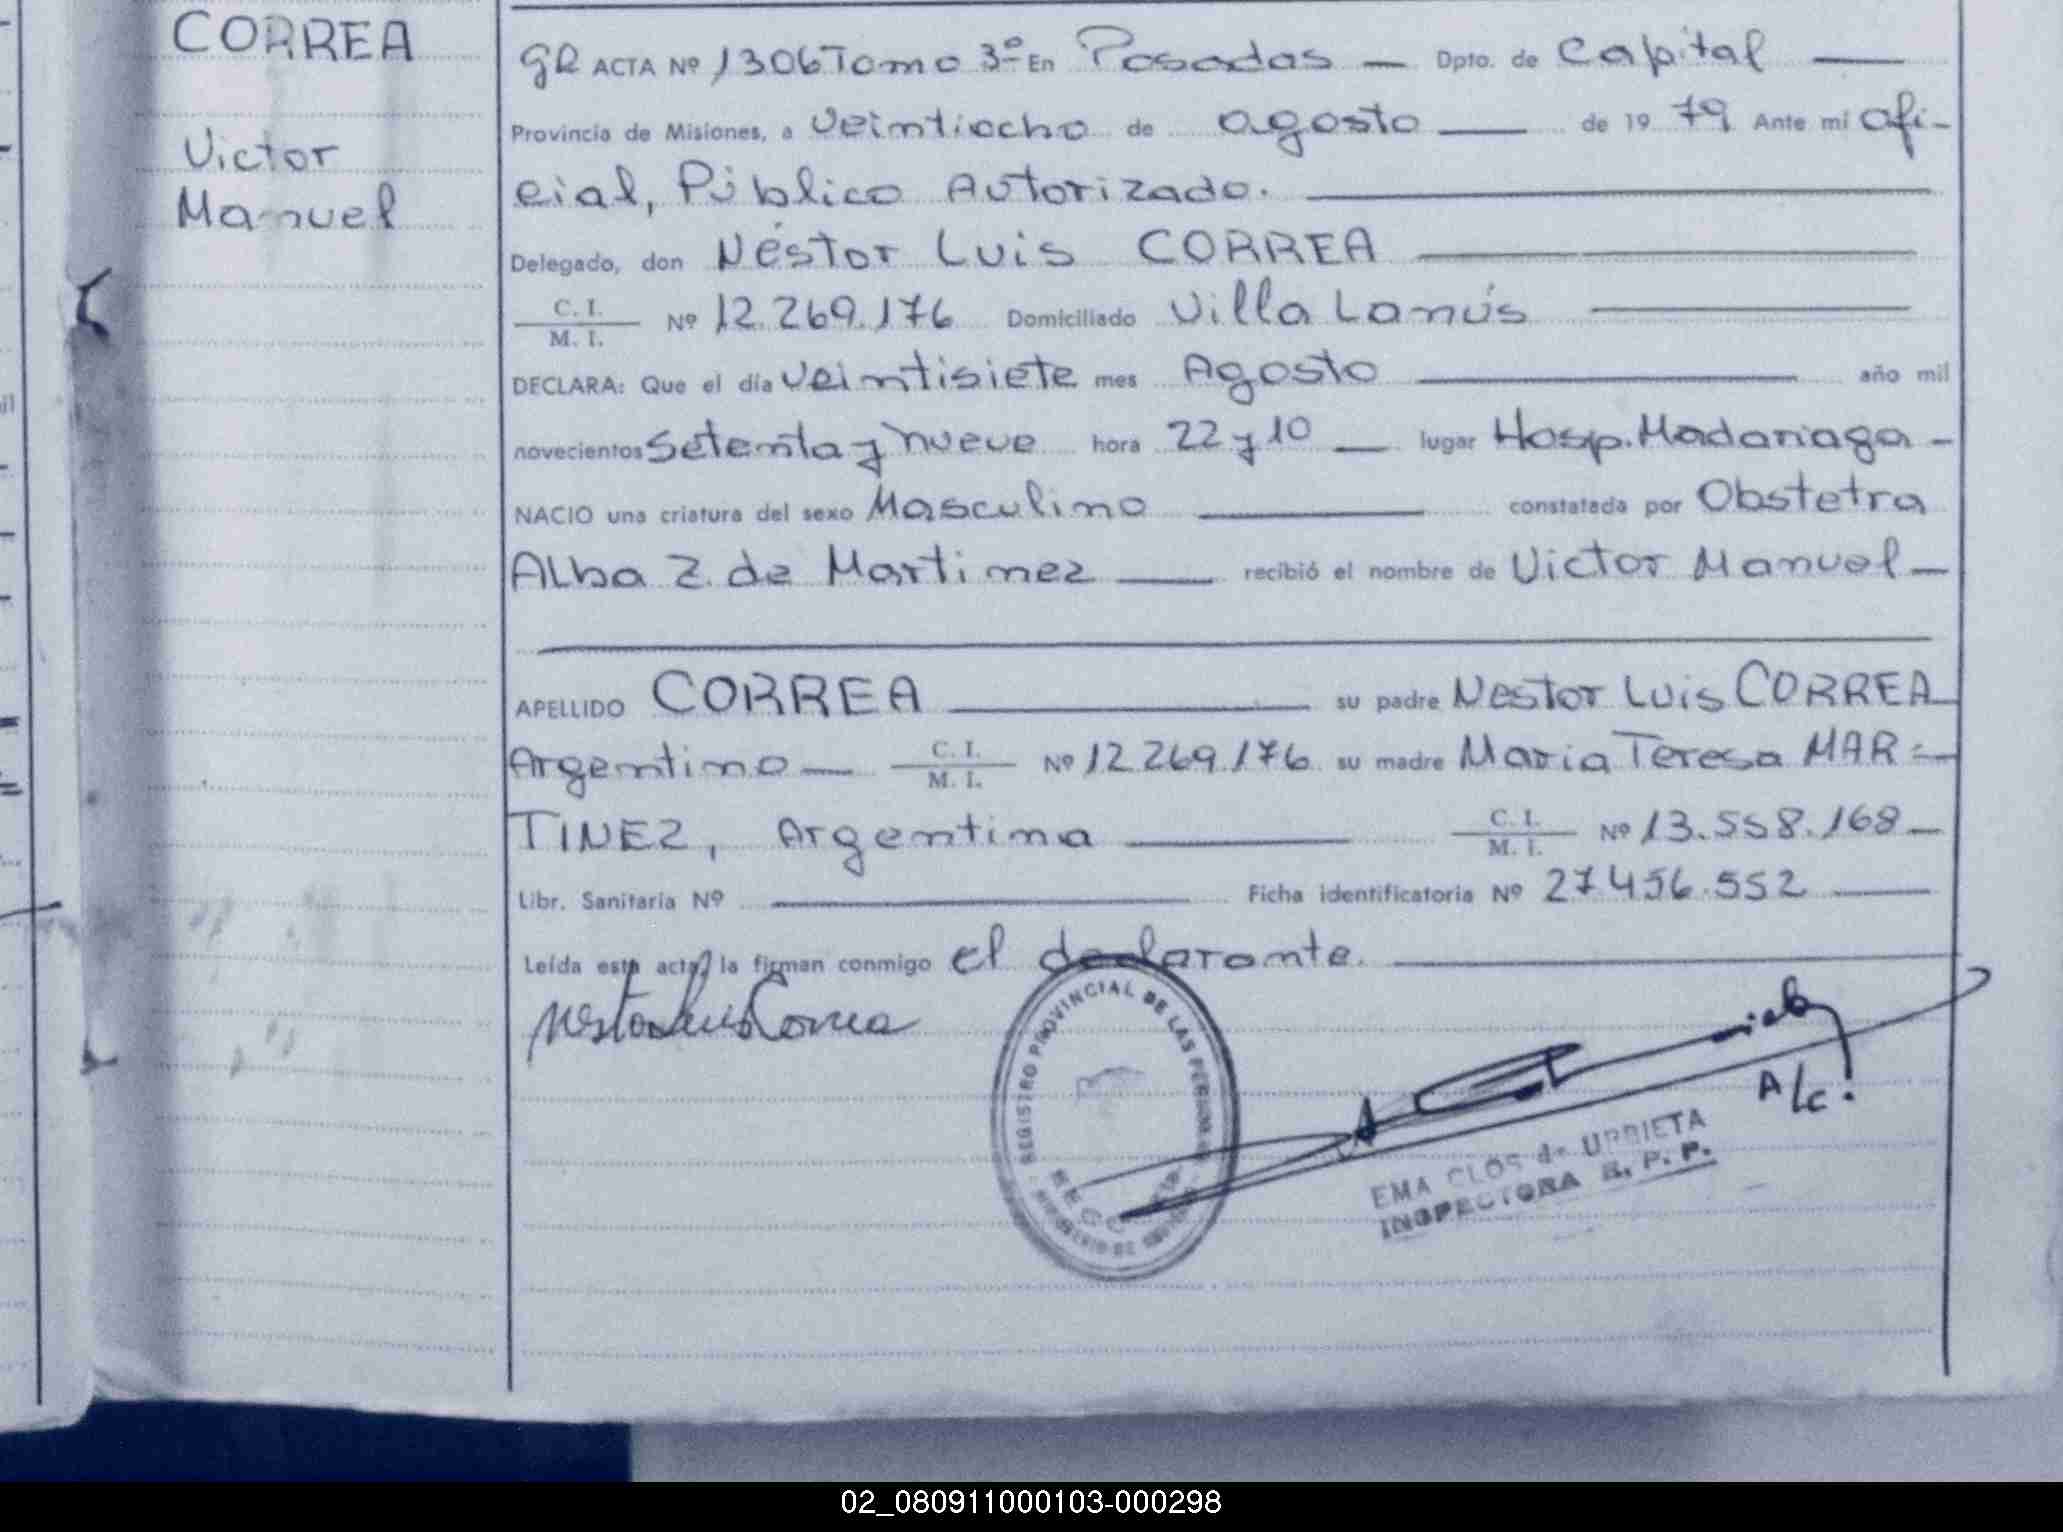 CORREA
Victor
Manuel
GR ACTA Nº 1306 Tomo 3º En Posadas — Dpto. de Capital —
Provincia de Misiones, a veintiocho de agosto — de 19 79 Ante mí ofi-
cial, Público Autorizado.
Delegado, don Néstor Luis CORREA
C. I.
M. I. Nº 12.269.176 Domiciliado Villa Lanús
DECLARA: Que el día veintisiete mes Agosto — año mil
novecientos setenta y nueve hora 22 y 10 — lugar Hosp. Madariaga -
NACIO una criatura del sexo Masculino — constatada por Obstetra
Alba Z. de Martinez — recibió el nombre de Victor Manuel —
APELLIDO CORREA — su padre Nestor Luis CORREA
Argentino — C. I. M. I. Nº 12.269.176 su madre Maria Teresa MAR=
TINEZ, Argentina — C. I. M. I. Nº 13.558.168 —
Libr. Sanitaria Nº — Ficha identificatoria Nº 27.456.552 —
Leída esta acta, la firman conmigo el declarante.
Nestor Luis Correa
REGISTRO PROVINCIAL DE LAS PERSONAS
A/c.
EMA CLOS de URRIETA
INSPECTORA R. P. P.
02_080911000103-000298